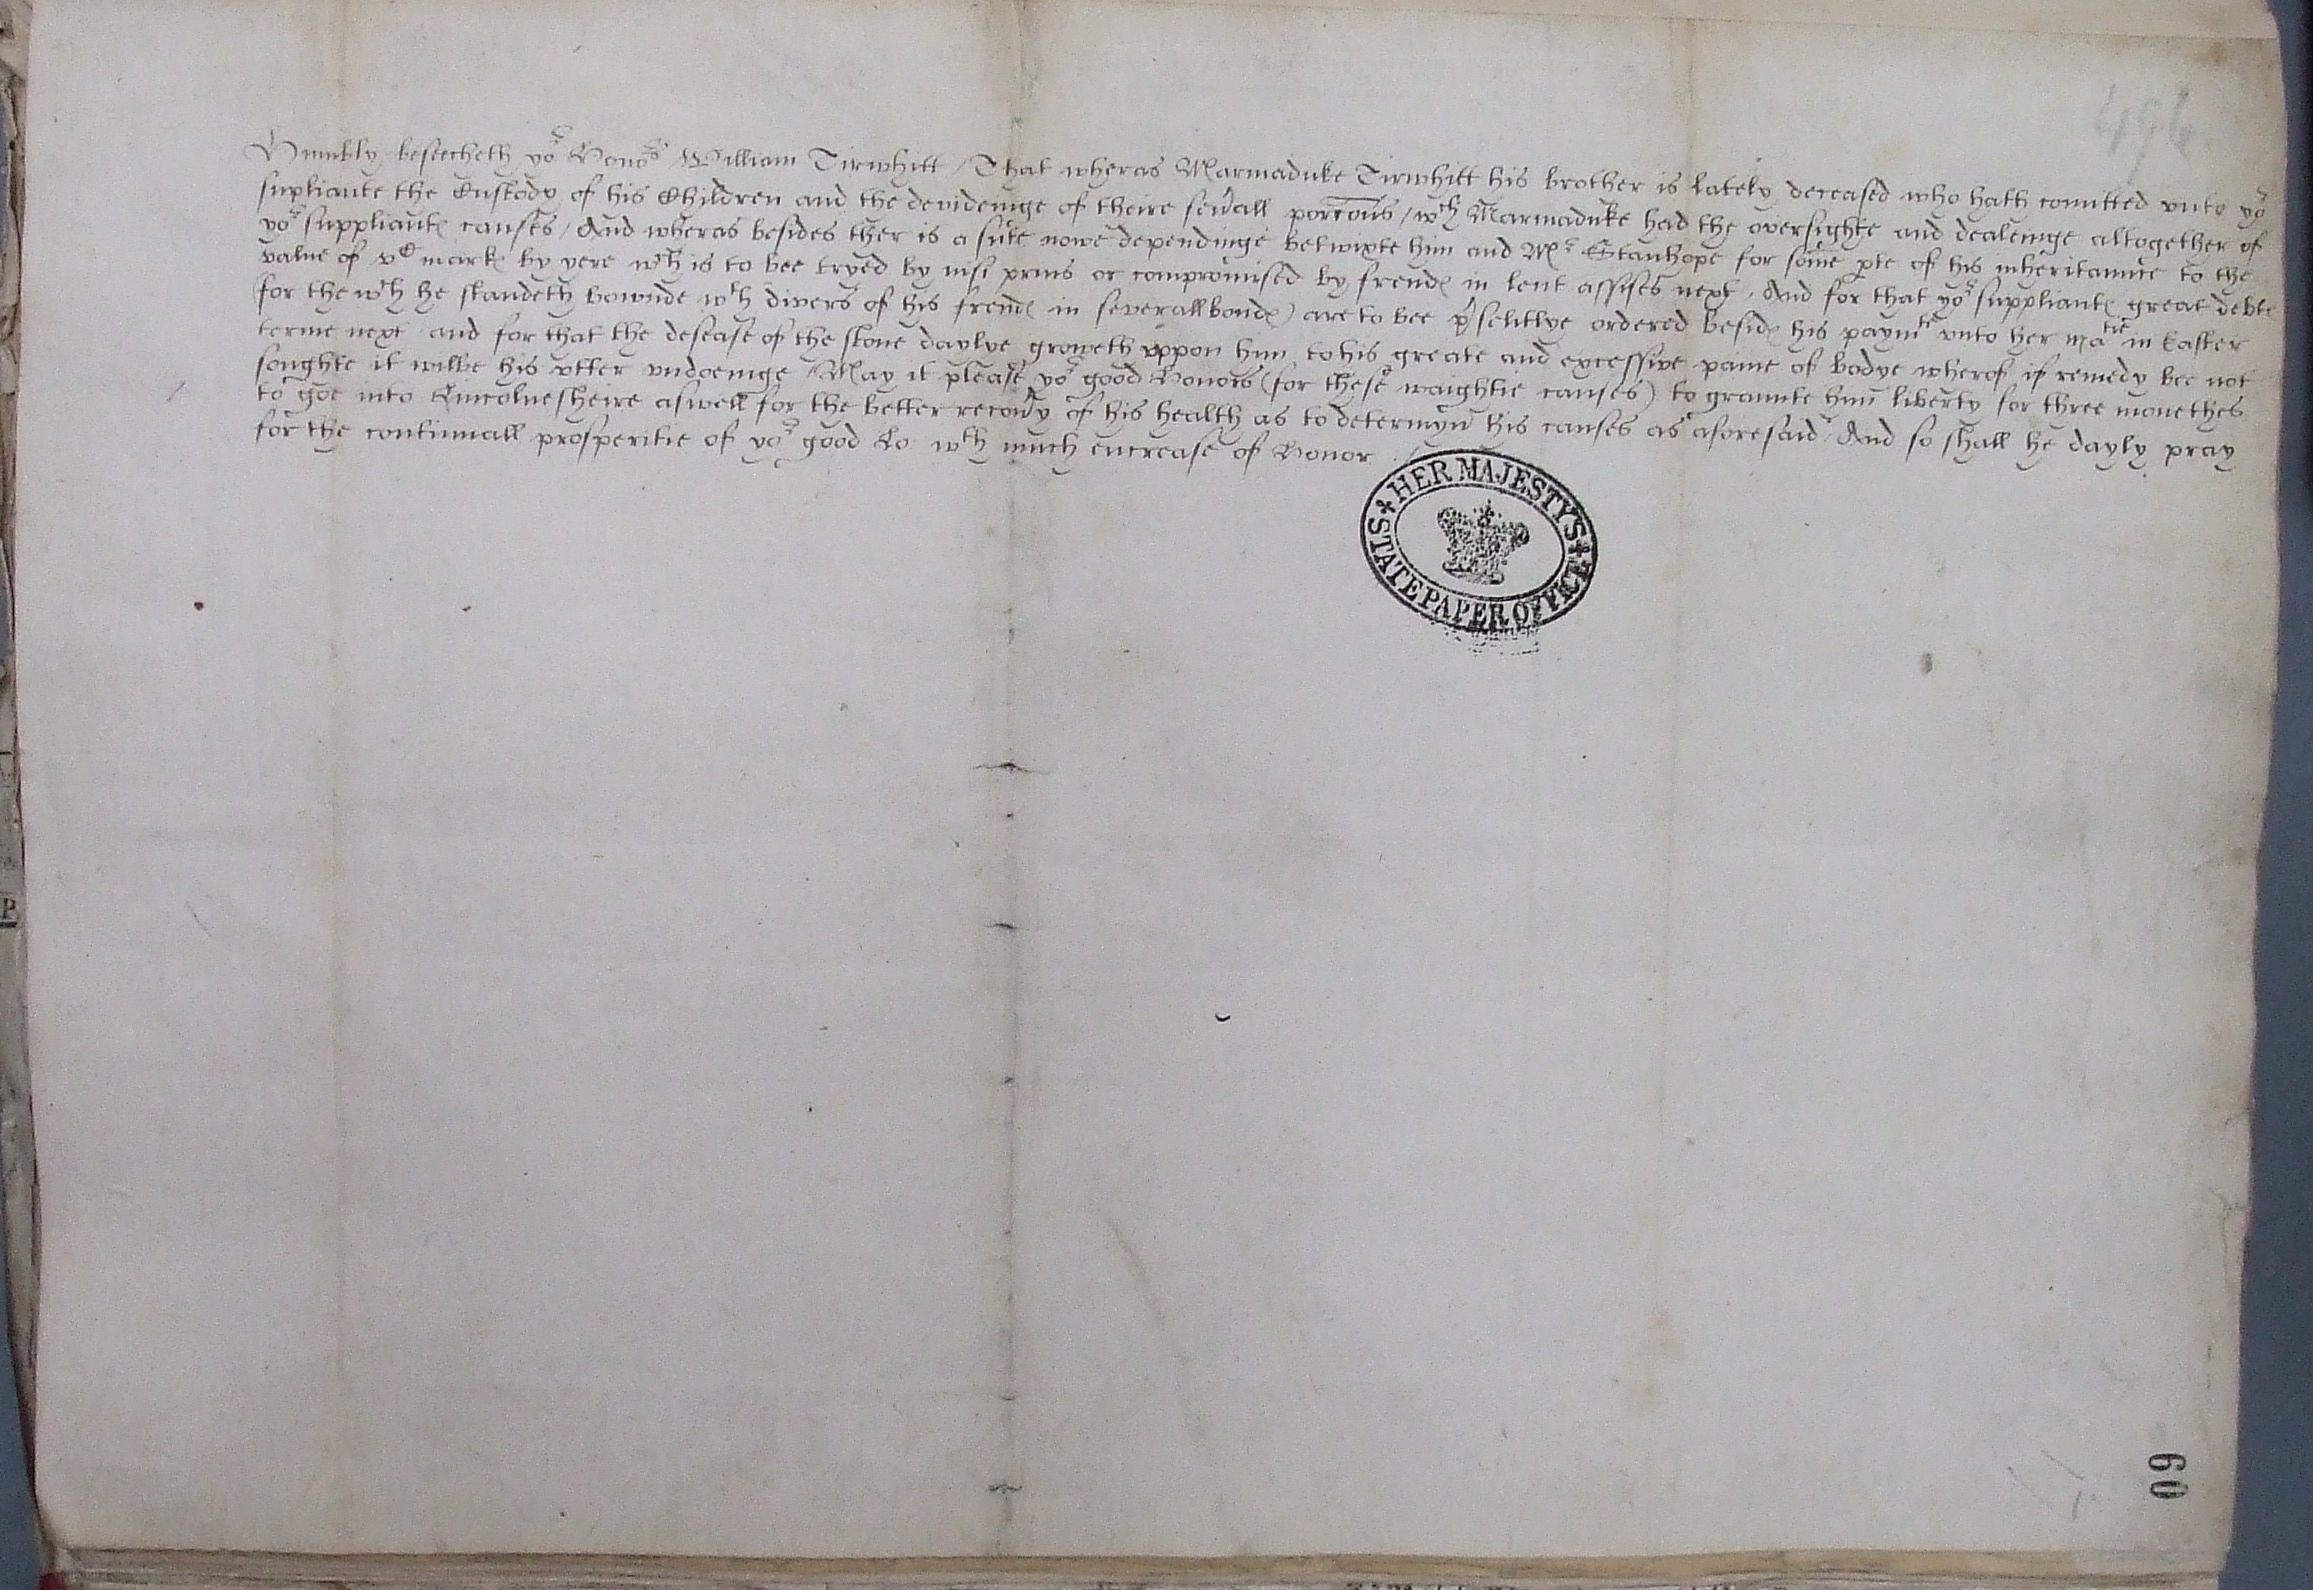 Humbly beseecheth yor Honors William Tirwhitt / That wheras Marmaduke Tirwhitt his brother is lately deceased who hath comitted vnto yor
supliante the Custody of his Children and the devideinge of theire seuall portons / wch Marmaduke had the oversighte and dealeinge altogether of
yor suppliantes causes / And wheras besides ther is a sute nowe dependinge betwixte him and Mr Stanhope for some pte of his inheritaunce to the
value of vc markes by yere wch is to bee tryed by nisi prius or compromised by frendes in lent assises next. And for that yor suppliantes great debte
(for the wch he standeth bownde wth divers of his frendes in severall bondes) are to bee psentlye ordered besides his paymts vnto her Matie in Easter
terme next and for that the desease of the stone daylye groweth vppon him to his greate and excessive paine of bodye wherof if remedy bee not
soughte it wilbe his vtter vndoeinge / May it please yor good Honors (for these waightie causes) to graunte him liberty for three monethes
to goe into Lincolnesheire aswell for the better recouy of his health as to determyn his causes as aforesaid / And so shall he dayly pray
for the continuall prosperitie of yor good Lo: wth much encrease of Honor
HER MAJESTY'S
STATE PAPER OFFICE
60